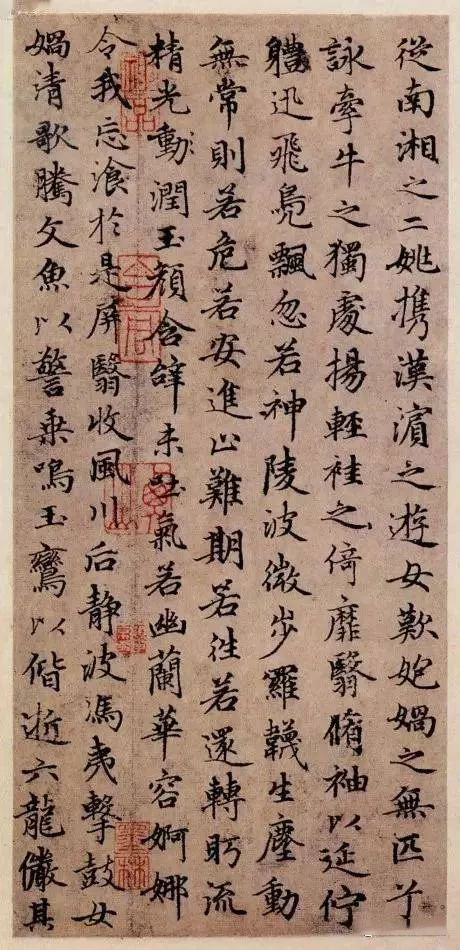 從南湘之二姚攜漢濱之遊女歎炮媧之無匹兮
詠牽牛之獨處揚輕袿之倚靡翳脩袖以延佇
軆迅飛鳧飄忽若神陵波微步羅韈生塵動
無常則若危若安進止難期若往若還轉眄流
精光動潤玉顏含辭未吐氣若幽蘭華容婀娜
令我忘飡於是屏翳收風川后静波馮夷擊鼓女
媧清歌騰文魚以警乗鳴玉鸞以偕逝六龍儼其